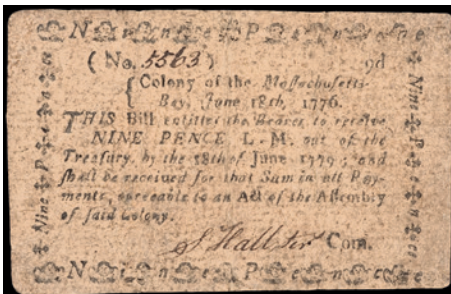 Nine Pence
(No. 5563) 9d
Colony of the Massachusetts
Bay, June 18th, 1776.
THIS Bill entitles the Bearer to receive
NINE PENCE L. M. out of the
Treasury, by the 18th of June 1779; and
shall be received for that Sum in all Pay-
ments, agreeable to an Act of the Assembly
of said Colony.
Com.
Nine Pence
Nine Pence
Nine Pence